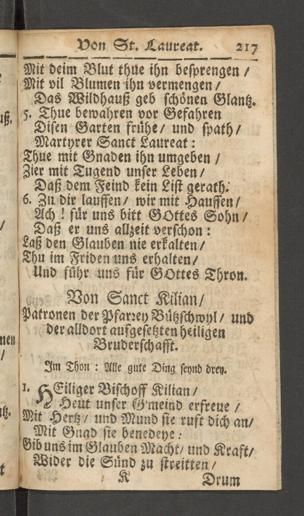 Von St. Laureat. 217
Mit deim Blut thue ihn besprengen /
Mit vil Blumen ihn vermengen /
Das Wildhauß geb schönen Glantz.
5. Thue bewahren vor Gefahren
Disen Garten frühe / und spath /
Martyrer Sanct Laureat:
Thue mit Gnaden ihn umgeben /
Zier mit Tugend unser Leben /
Daß dem Feind kein List gerath.
6. Zu dir lauffen / wir mit Hauffen /
Ach! für uns bitt GOttes Sohn /
Daß er uns allzeit verschon:
Laß den Glauben nie erkalten /
Thu im Friden uns erhalten /
Und führ uns für GOttes Thron.
Von Sanct Kilian /
Patronen der Pfarrey Bützschwyl / und
der alldort aufgesetzten heiligen
Bruderschafft.
Im Thon: Alle gute Ding seynd drey.
1. HEiliger Bischoff Kilian /
Heut unser G'meind erfreue /
Mit Hertz / und Mund sie rufft dich an /
Mit Gnad sie benedeye:
Gib uns im Glauben Macht / und Kraft /
Wider die Sünd zu streitten /
K Drum